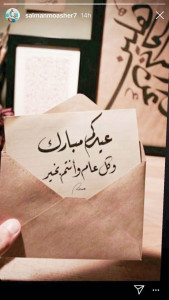 salmanmoasher7 14h
عيدكم مبارك
وكل عام وأنتم بخير